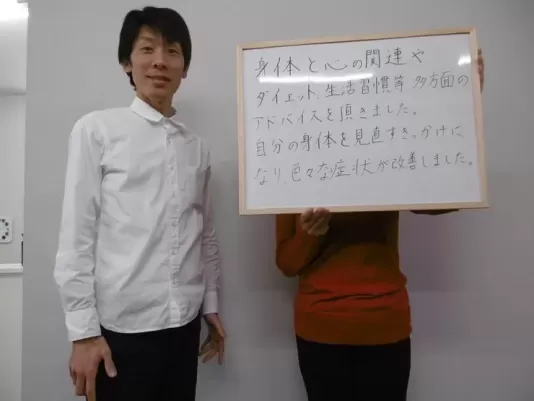 身体と心の関連や
ダイエット、生活習慣等 多方面の
アドバイスを頂きました。
自分の身体を見直すきっかけに
なり、色々な症状が改善しました。